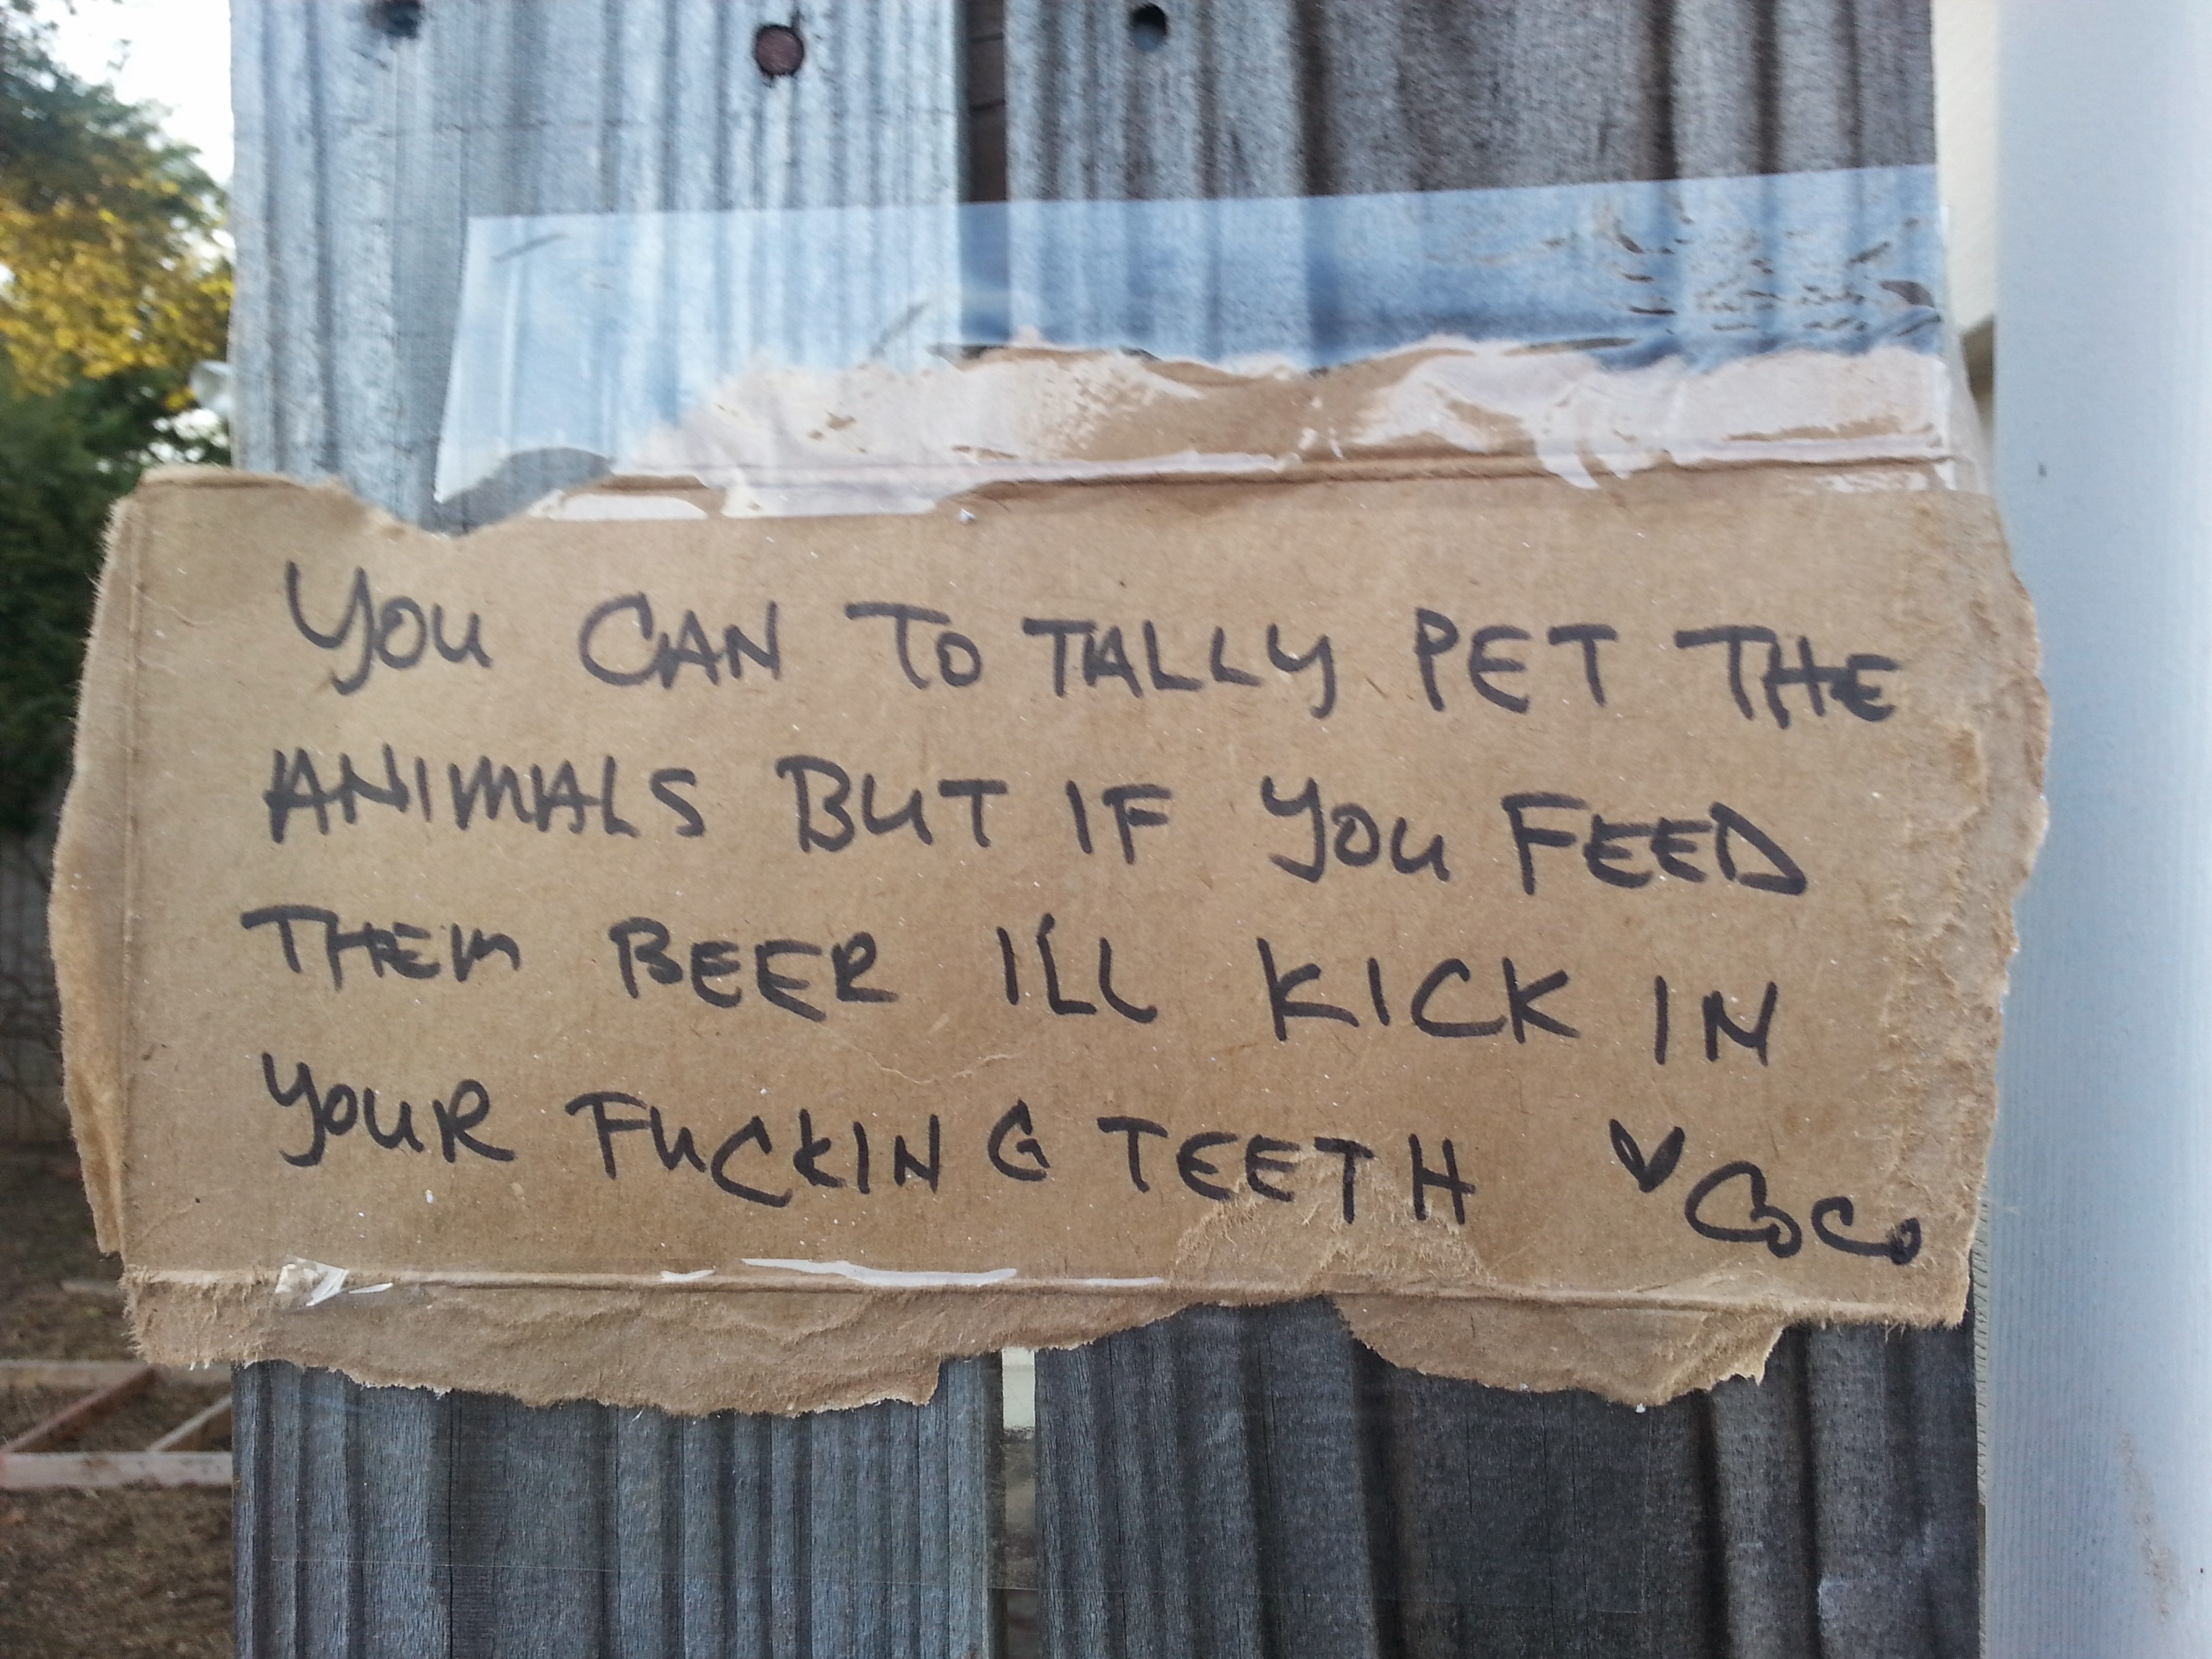 YOU CAN TOTALLY PET THE
ANIMALS BUT IF YOU FEED
THEM BEER I'LL KICK IN
YOUR FUCKING TEETH ♥ COCO